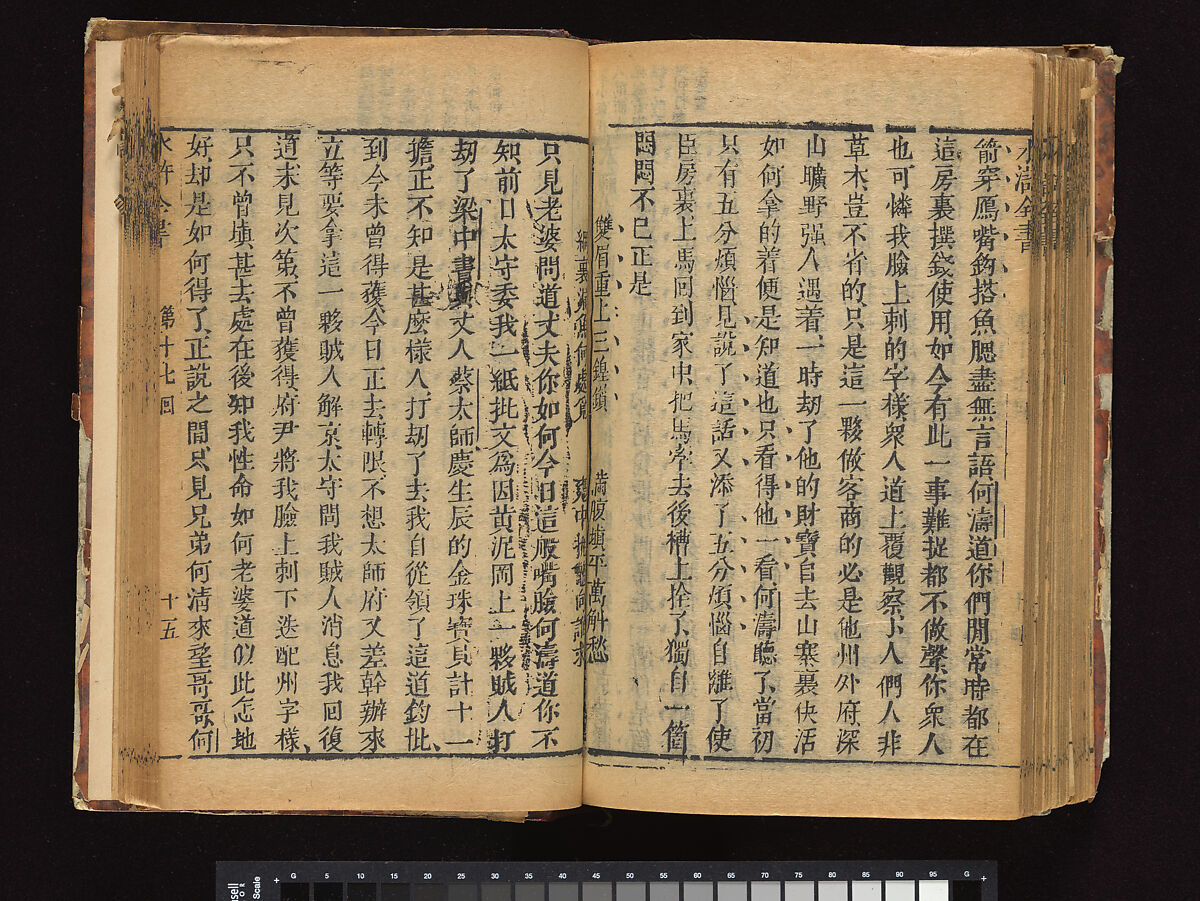 水滸全書
箭穿鴈嘴鈎搭魚腮盡無言語何濤道你們閒常時都在
這房裏撰錢使用如今有此一事難捉都不做聲你衆人
也可憐我臉上刺的字樣衆人道上覆觀察小人們人非
草木豈不省的只是這一夥做客商的必是他州外府深
山曠野强人遇着一時劫了他的財寶自去山寨裏快活
如何拿的着便是知道也只看得他一看何濤聽了當初
只有五分煩惱見說了這話又添了五分煩惱自離了使
臣房裏上馬回到家中把馬牽去後槽上拴了獨自一箇
悶悶不已正是
雙眉重上三鍠鎖 滿腹塡平萬斛愁
網裏漏魚何處覓 甕中捉鱉向誰求
只見老婆問道丈夫你如何今日這般嘴臉何濤道你不
知前日太守委我一紙批文爲因黄泥岡上一夥賊人打
劫了梁中書與丈人蔡太師慶生辰的金珠寶貝計十一
擔正不知是甚麽樣人打劫了去我自從領了這道鈞批
到今未曾得獲今日正去轉限不想太師府又差幹辦來
立等要拿這一夥賊人解京太守問我賊人消息我回復
道未見次第不曾獲得府尹將我臉上刺下迭配州字樣
只不曾塡甚去處在後知我性命如何老婆道似此怎地
好却是如何得了正說之間只見兄弟何清來望哥哥何
水滸全書 第十七回 十五